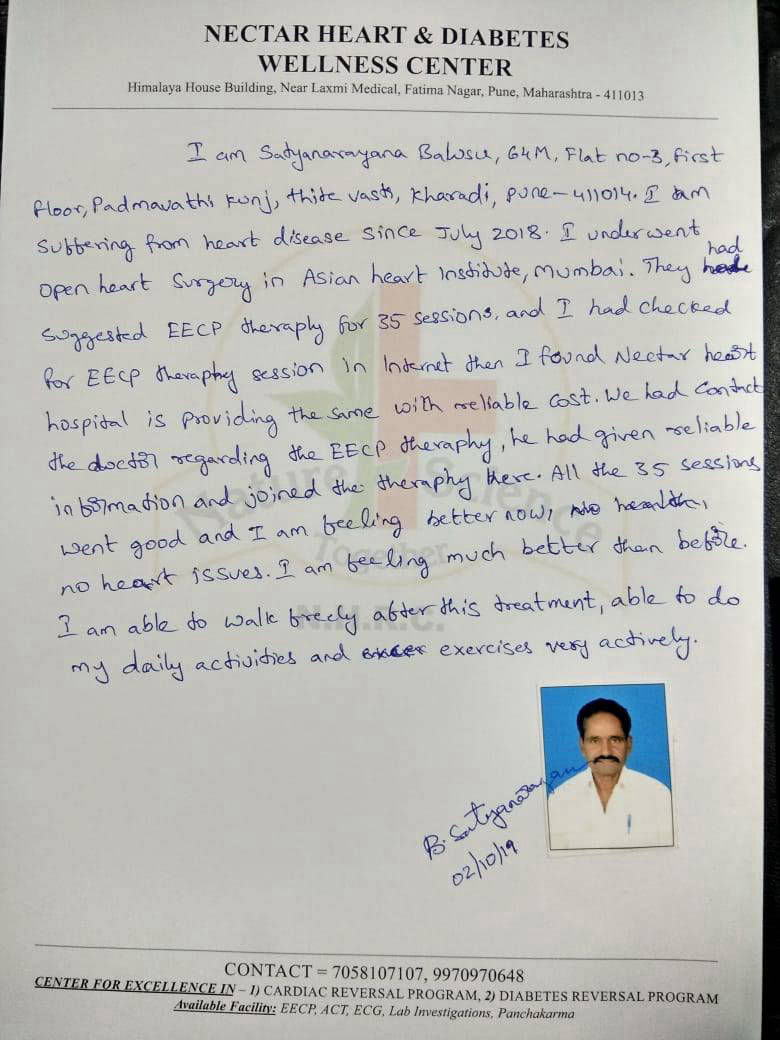 NECTAR HEART & DIABETES
WELLNESS CENTER
Himalaya House Building, Near Laxmi Medical, Fatima Nagar, Pune, Maharashtra - 411013
I am Satyanarayana Balusu, 64M, Flat no-3, First
floor, Padmavathi Kunj, thite vasti, Kharadi, pune-411014. I am
suffering from heart disease since July 2018. I underwent
open heart surgery in Asian heart Institute, Mumbai. They had
suggested EECP theraphy for 35 sessions, and I had checked
for EECP theraphy session in Internet then I found Nectar heart
hospital is providing the same with reliable cost. We had contact
the doctor regarding the EECP theraphy, he had given reliable
information and joined the theraphy here. All the 35 sessions
went good and I am feeling better now,
no heart issues. I am feeling much better than before.
I am able to walk freely after this treatment, able to do
my daily activities and exercises very actively.
Nature Science
Together
N.H.R.C.
B. Satyanarayan
02/10/19
CONTACT = 7058107107, 9970970648
CENTER FOR EXCELLENCE IN – 1) CARDIAC REVERSAL PROGRAM, 2) DIABETES REVERSAL PROGRAM
Available Facility: EECP, ACT, ECG, Lab Investigations, Panchakarma